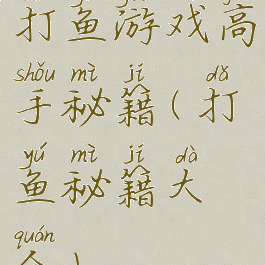 打鱼游戏高
shǒu mì jí dǎ
手秘籍(打
yú mì jí dà
鱼秘籍大
quán